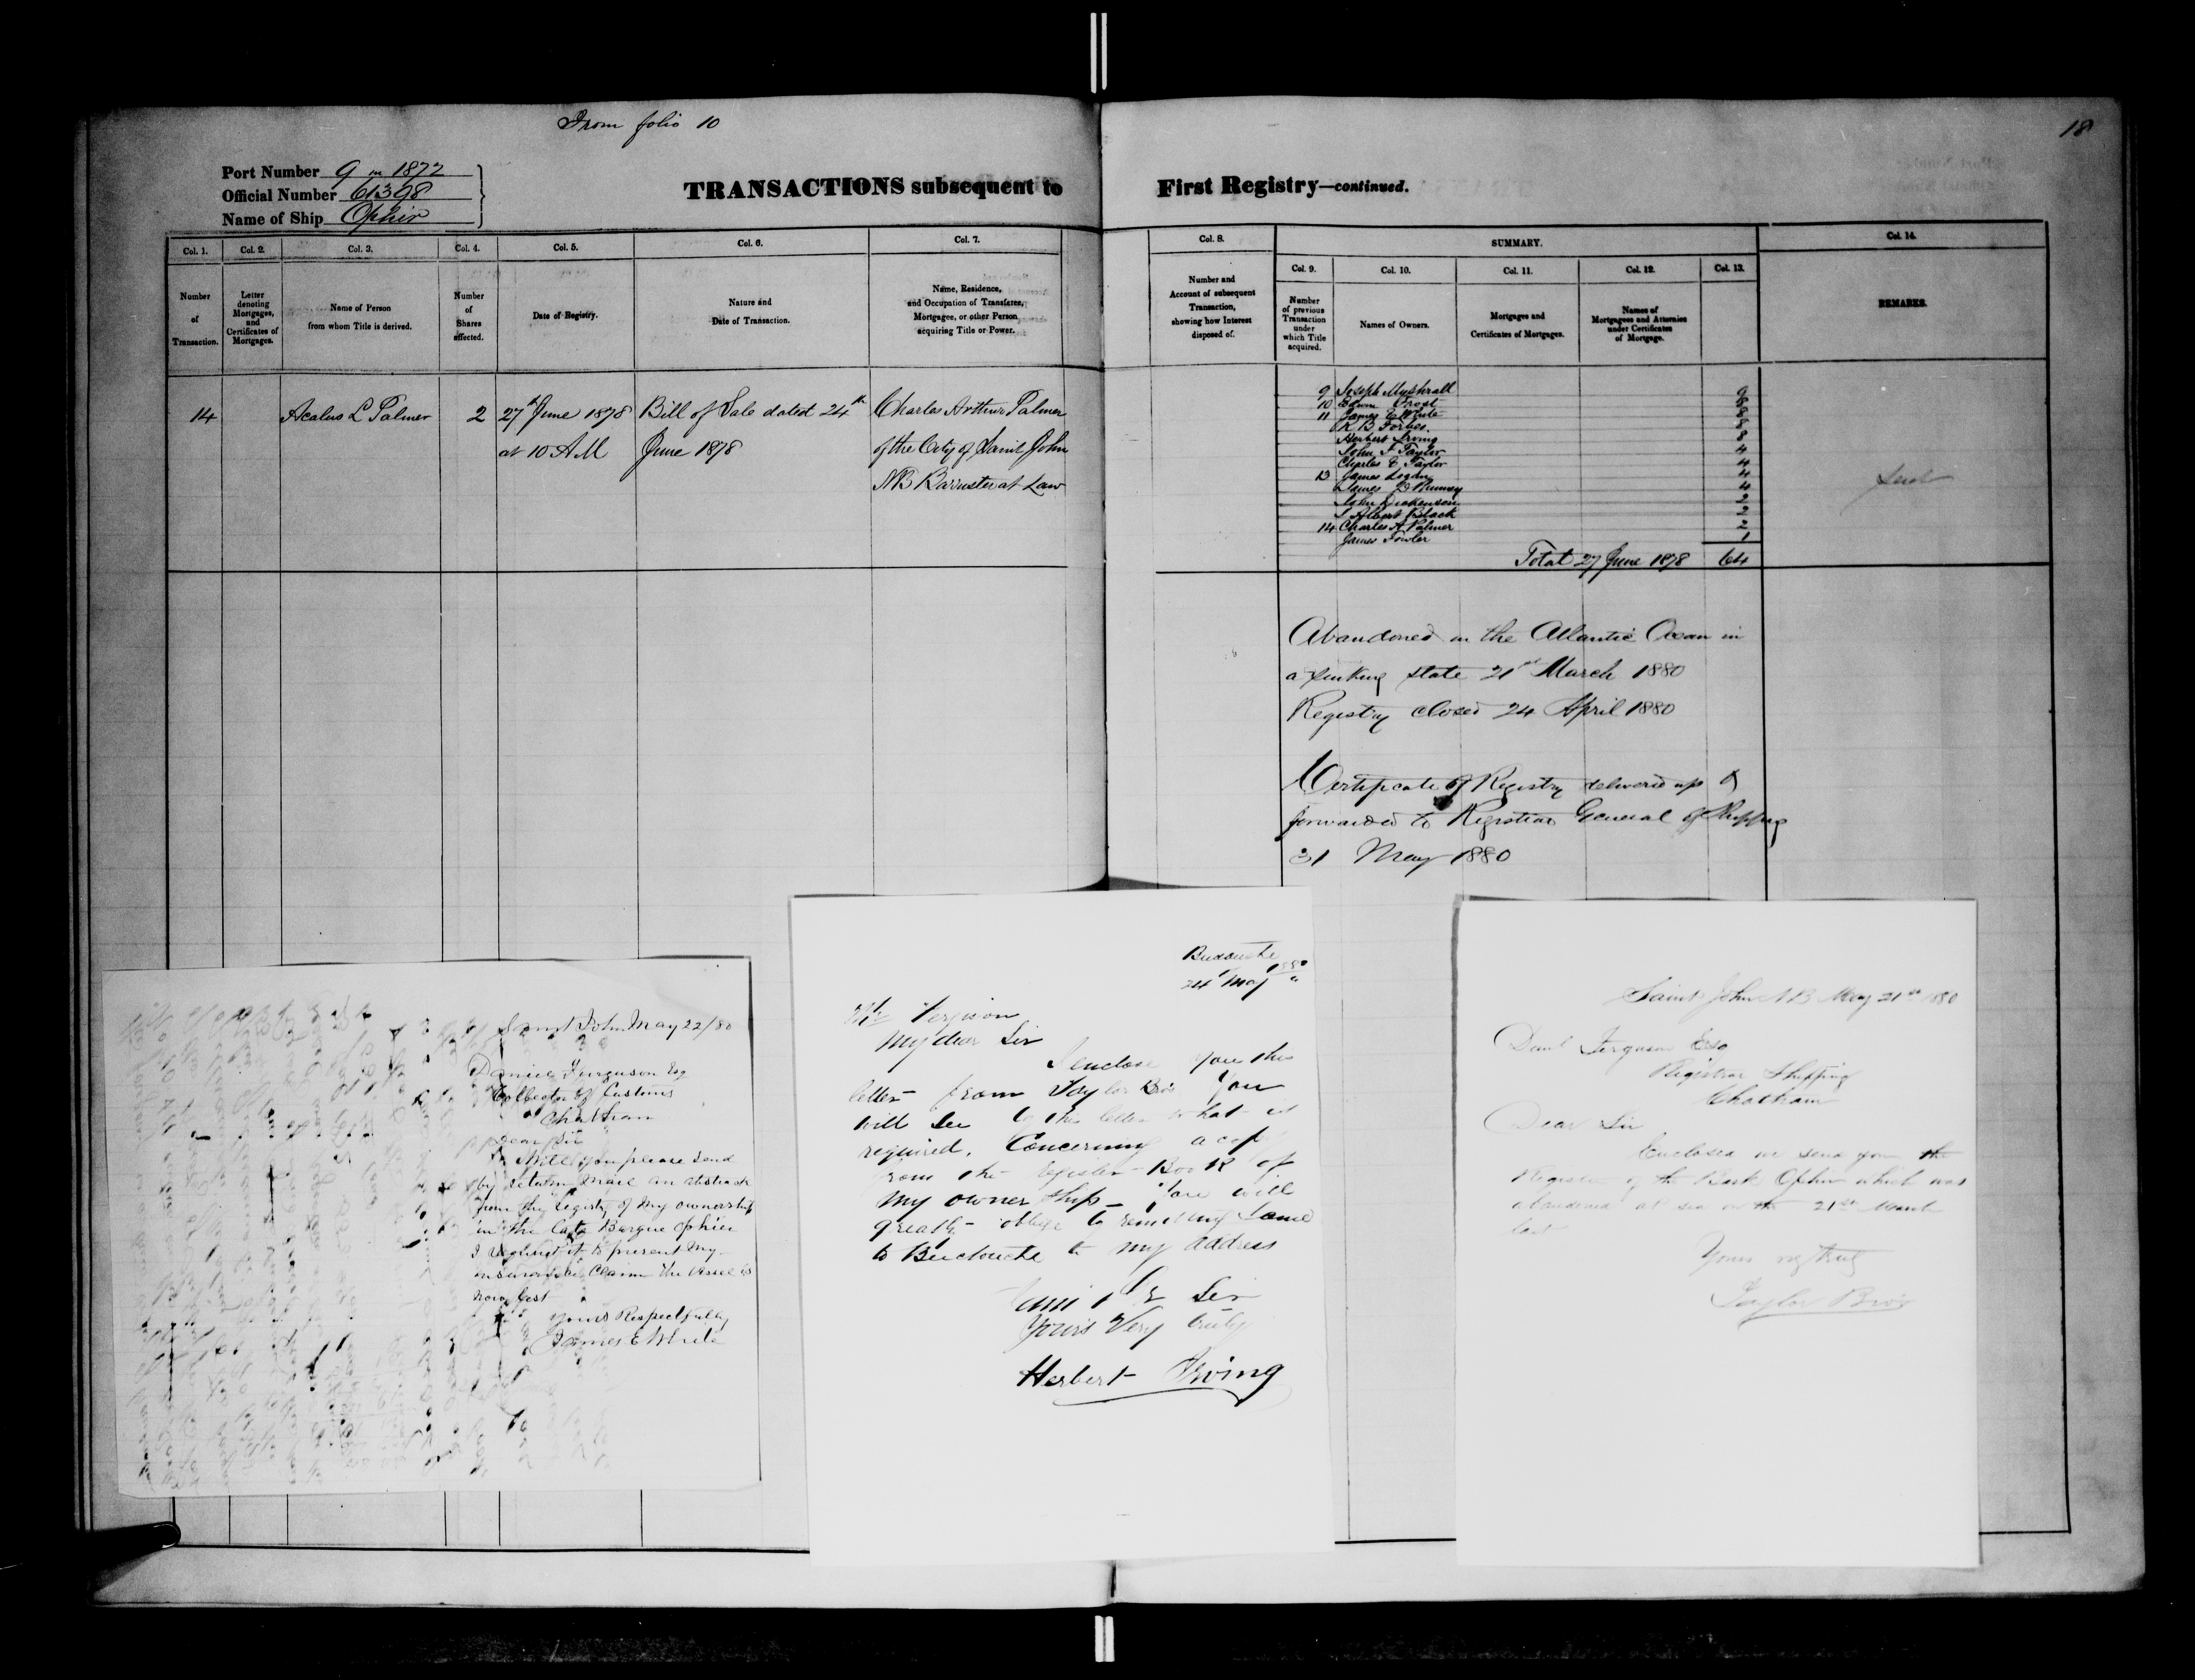 From folio 10
18
Port Number 9 in 1872
Official Number 61398
Name of Ship Ophir
TRANSACTIONS subsequent to First Registry—continued.
Col. 1.
Number of Transaction.
Col. 2.
Letter denoting Mortgages, and Certificates of Mortgages.
Col. 3.
Name of Person from whom Title is derived.
Col. 4.
Number of Shares affected.
Col. 5.
Date of Registry.
Col. 6.
Nature and Date of Transaction.
Col. 7.
Name, Residence, and Occupation of Transferee, Mortgagee, or other Person acquiring Title or Power.
Col. 8.
Number and Account of subsequent Transaction, showing how Interest disposed of.
SUMMARY.
Col. 9.
Number of previous Transaction under which Title acquired.
Col. 10.
Names of Owners.
Col. 11.
Mortgages and Certificates of Mortgages.
Col. 12.
Names of Mortgagees and Attornies under Certificates of Mortgage.
Col. 13.
Col. 14.
REMARKS.
14 Acalus L Palmer 2 27th June 1878 Bill of Sale dated 24th Charles Arthur Palmer
at 10 AM June 1878 of the City of Saint John
NB Barrister at Law
9 Joseph Mushrall
10 Edwin Frost
11 James E White
R B Forbes.
Herbert Irving
John F Taylor 4
Charles E Taylor 4
13 James Logan 4
James Rumsey 4
John Dickenson
S Albert Black
14 Charles A Palmer 2
James Fowler 1
Total 27 June 1878 64
Abandoned in the Atlantic Ocean in
a sinking state 21st March 1880
Registry closed 24 April 1880
Certificate of Registry delivered up &
forwarded to Registrar General of Shipping
31 May 1880
Saint John May 22/80
Daniel Ferguson Esq
Collector of Customs
Chatham
Dear Sir
Will you please send
by return mail an abstract
from the Registry of my ownership
in the late Barque Ophir
I require it to present my
insurance claim the vessel is
now lost
Yours Respectfully
James E White
Buctouche
24 May 1880
Mr Ferguson
My dear Sir
I enclose you this
letter from Taylor Bros You
will see by this letter what is
required. Concerning a copy
from the register Book of
my owner ship - You will
greatly oblige by remitting same
to Buctouche to my address
Sir
Yours Very truly
Herbert Irving
Saint John NB May 21st 1880
Danl Ferguson Esq
Registrar Shipping
Chatham
Dear Sir
Enclosed we send you the
Register of the Bark Ophir which was
abandoned at sea on the 21st March
last
Yours very truly
Taylor Bros